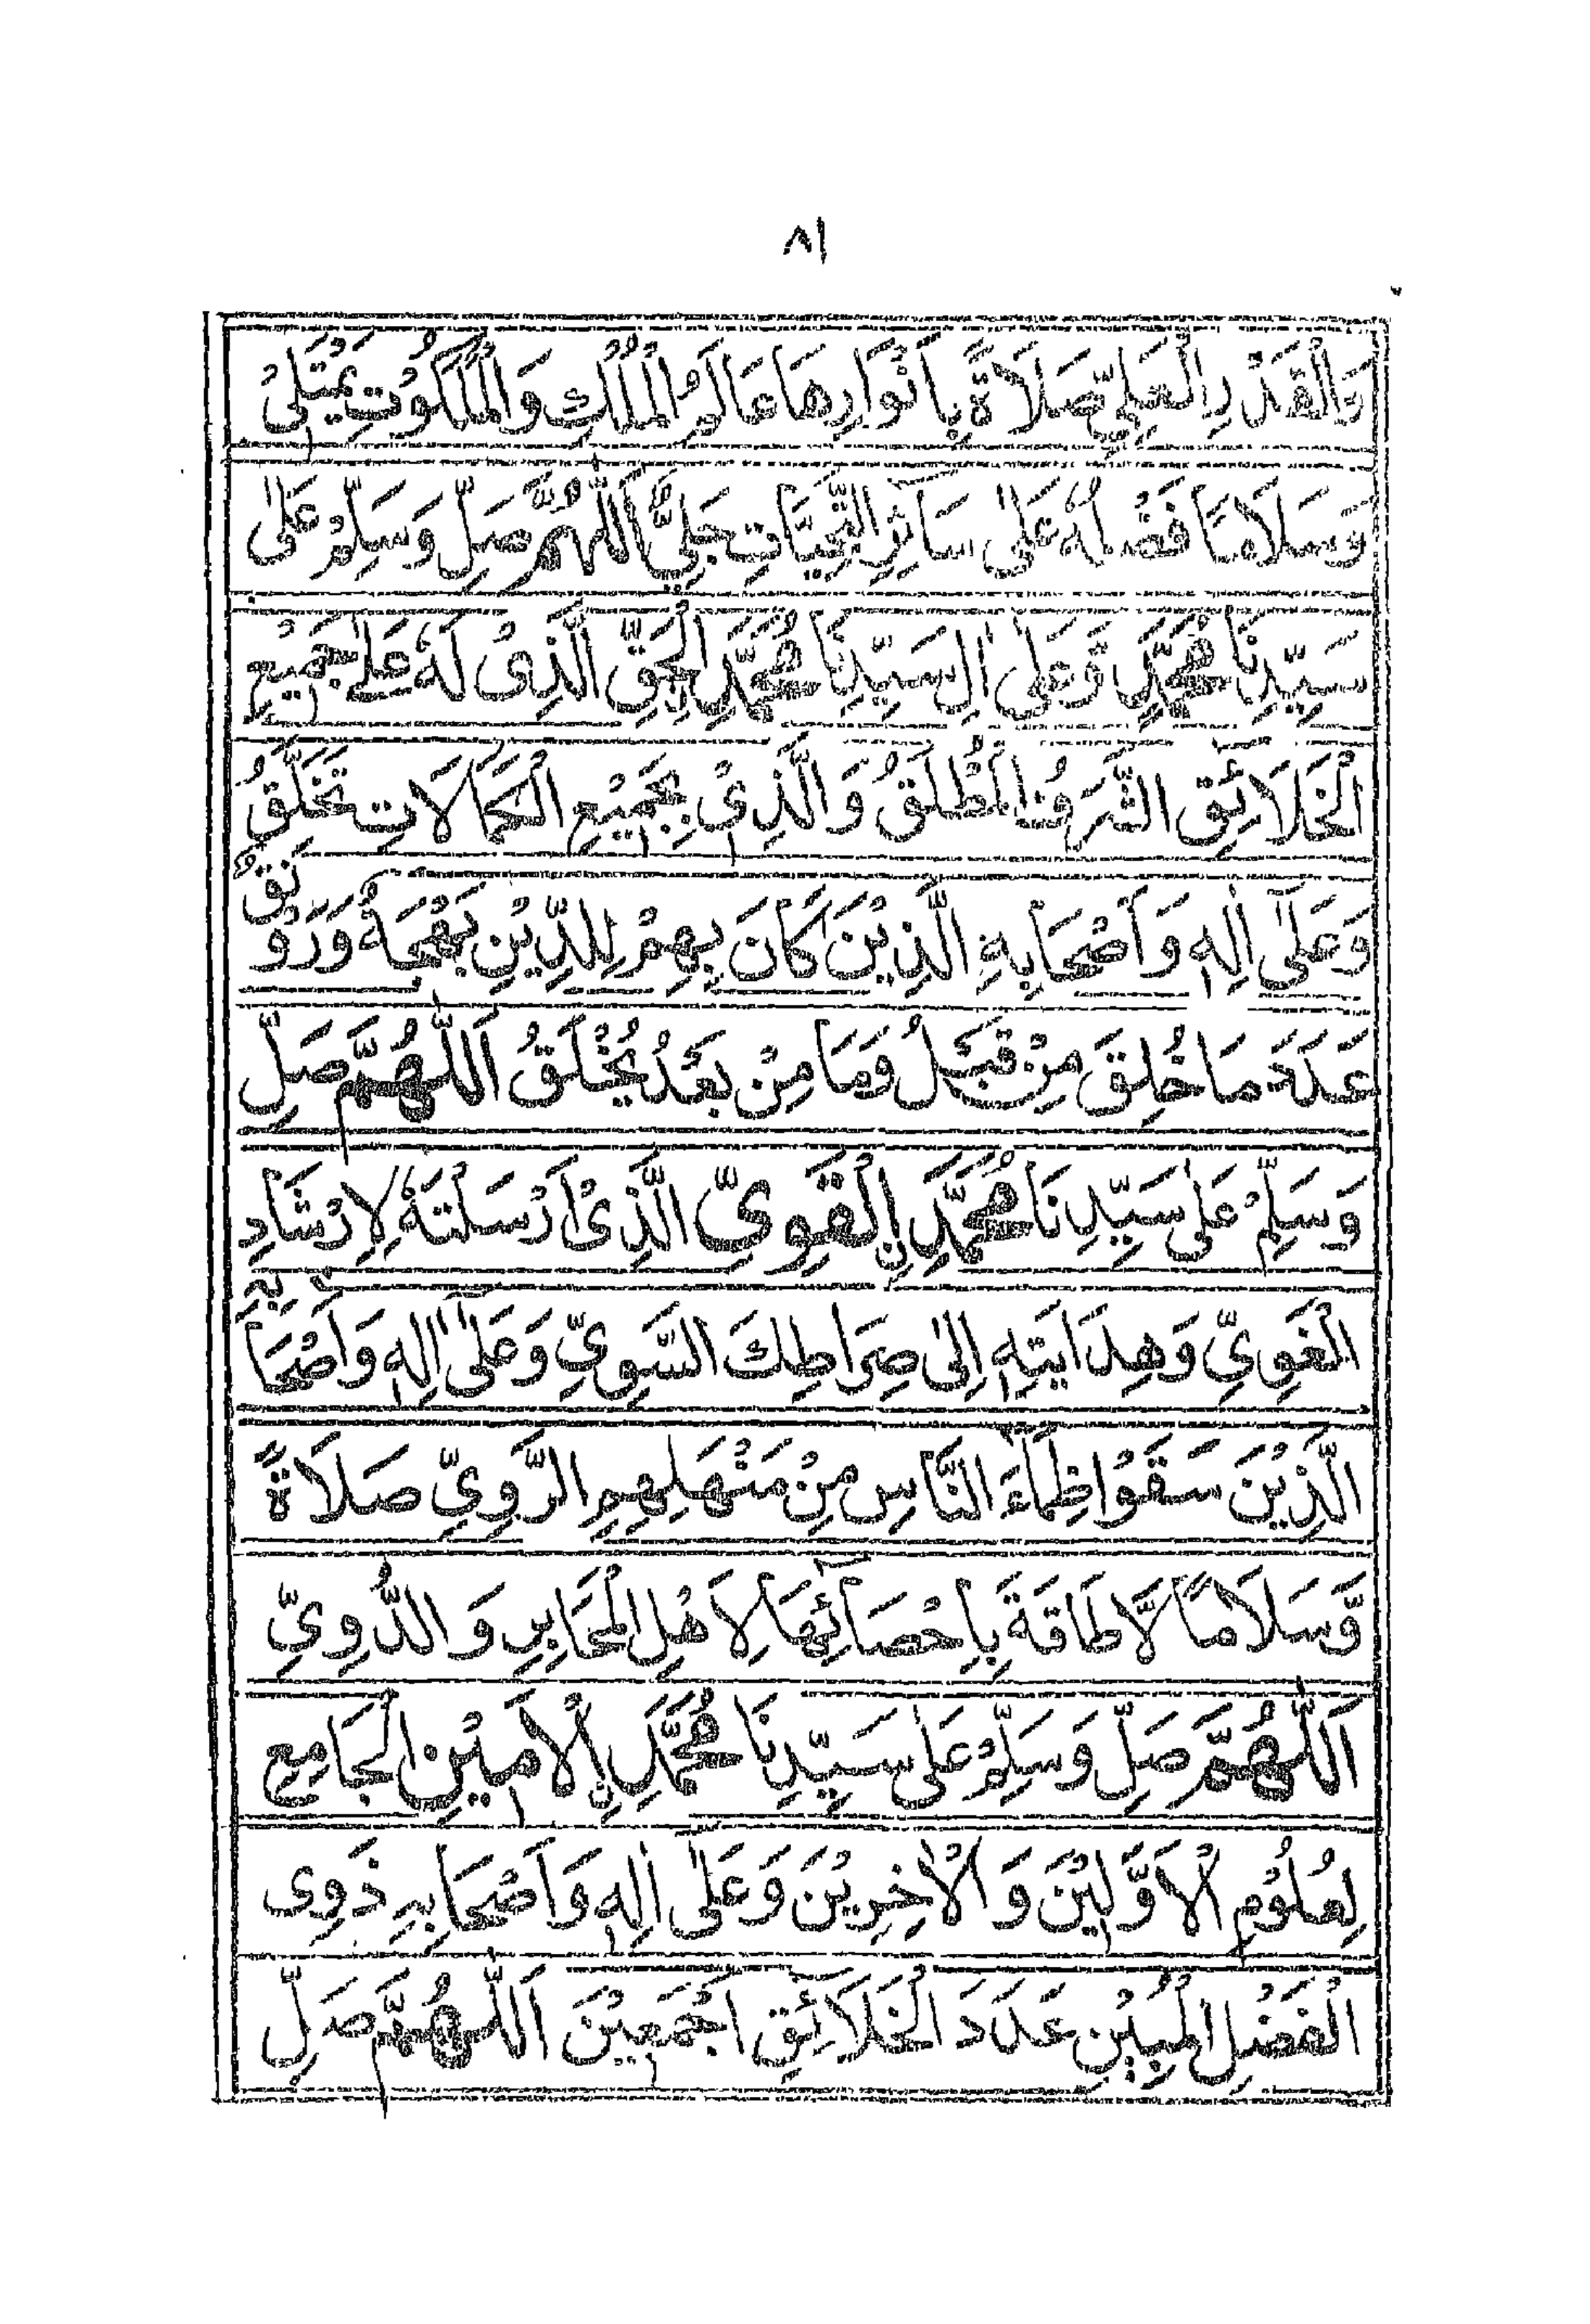 ٨١
وَالْقَدْرِ الْعَلِيِّ صَلَاةً بِأَنْوَارِهَا عَالَمُ الْمُلْكِ وَالْمَلَكُوْتِ يَمْتَلِئُ
وَسَلَامًا فَضْلُهُ عَلٰى سَائِرِ التَّحِيَّاتِ جَلِيٌّ اَللّٰهُمَّ صَلِّ وَسَلِّمْ عَلٰى
سَيِّدِنَا مُحَمَّدٍ وَّعَلٰى اٰلِ سَيِّدِنَا مُحَمَّدِ الْحَقِّ الَّذِىْ لَهٗ عَلٰى جَمِيْعِ
الْخَلَائِقِ الشَّرَفُ الْمُطْلَقُ وَالَّذِىْ بِجَمِيْعِ الْكَمَالَاتِ تَخَلَّقُ
وَعَلٰٓى اٰلِهٖ وَاَصْحَابِهِ الَّذِيْنَ كَانَ بِهِمْ لِلدِّيْنِ بَهْجَةٌ وَرَوْنَقٌ
عَدَدَ مَا خُلِقَ مِنْ قَبْلُ وَمَا مِنْ بَعْدُ يُخْلَقُ اَللّٰهُمَّ صَلِّ
وَسَلِّمْ عَلٰى سَيِّدِنَا مُحَمَّدِنِ الْقَوِىِّ الَّذِىْ اَرْسَلْتَهٗ لِاِرْشَادِ
الْغَوِىِّ وَهِدَايَتِهٖ اِلٰى صِرَاطِكَ السَّوِىِّ وَعَلٰٓى اٰلِهٖ وَاَصْحَابِهِ
الَّذِيْنَ سَقَوْا ظِمَاءَ النَّاسِ مِنْ مَنْهَلِهِمِ الرَّوِىِّ صَلَاةً
وَّسَلَامًا لَّا طَاقَةَ بِاِحْصَآئِهَا لِاَهْلِ الْمَحَابِرِ وَالدُّوِىِّ
اَللّٰهُمَّ صَلِّ وَسَلِّمْ عَلٰى سَيِّدِنَا مُحَمَّدِنِ الْاَمِيْنِ الْجَامِعِ
لِعُلُوْمِ الْاَوَّلِيْنَ وَالْاٰخِرِيْنَ وَعَلٰٓى اٰلِهٖ وَاَصْحَابِهٖ ذَوِى
الْفَضْلِ الْمُبِيْنِ عَدَدَ الْخَلَآئِقِ اَجْمَعِيْنَ اَللّٰهُمَّ صَلِّ